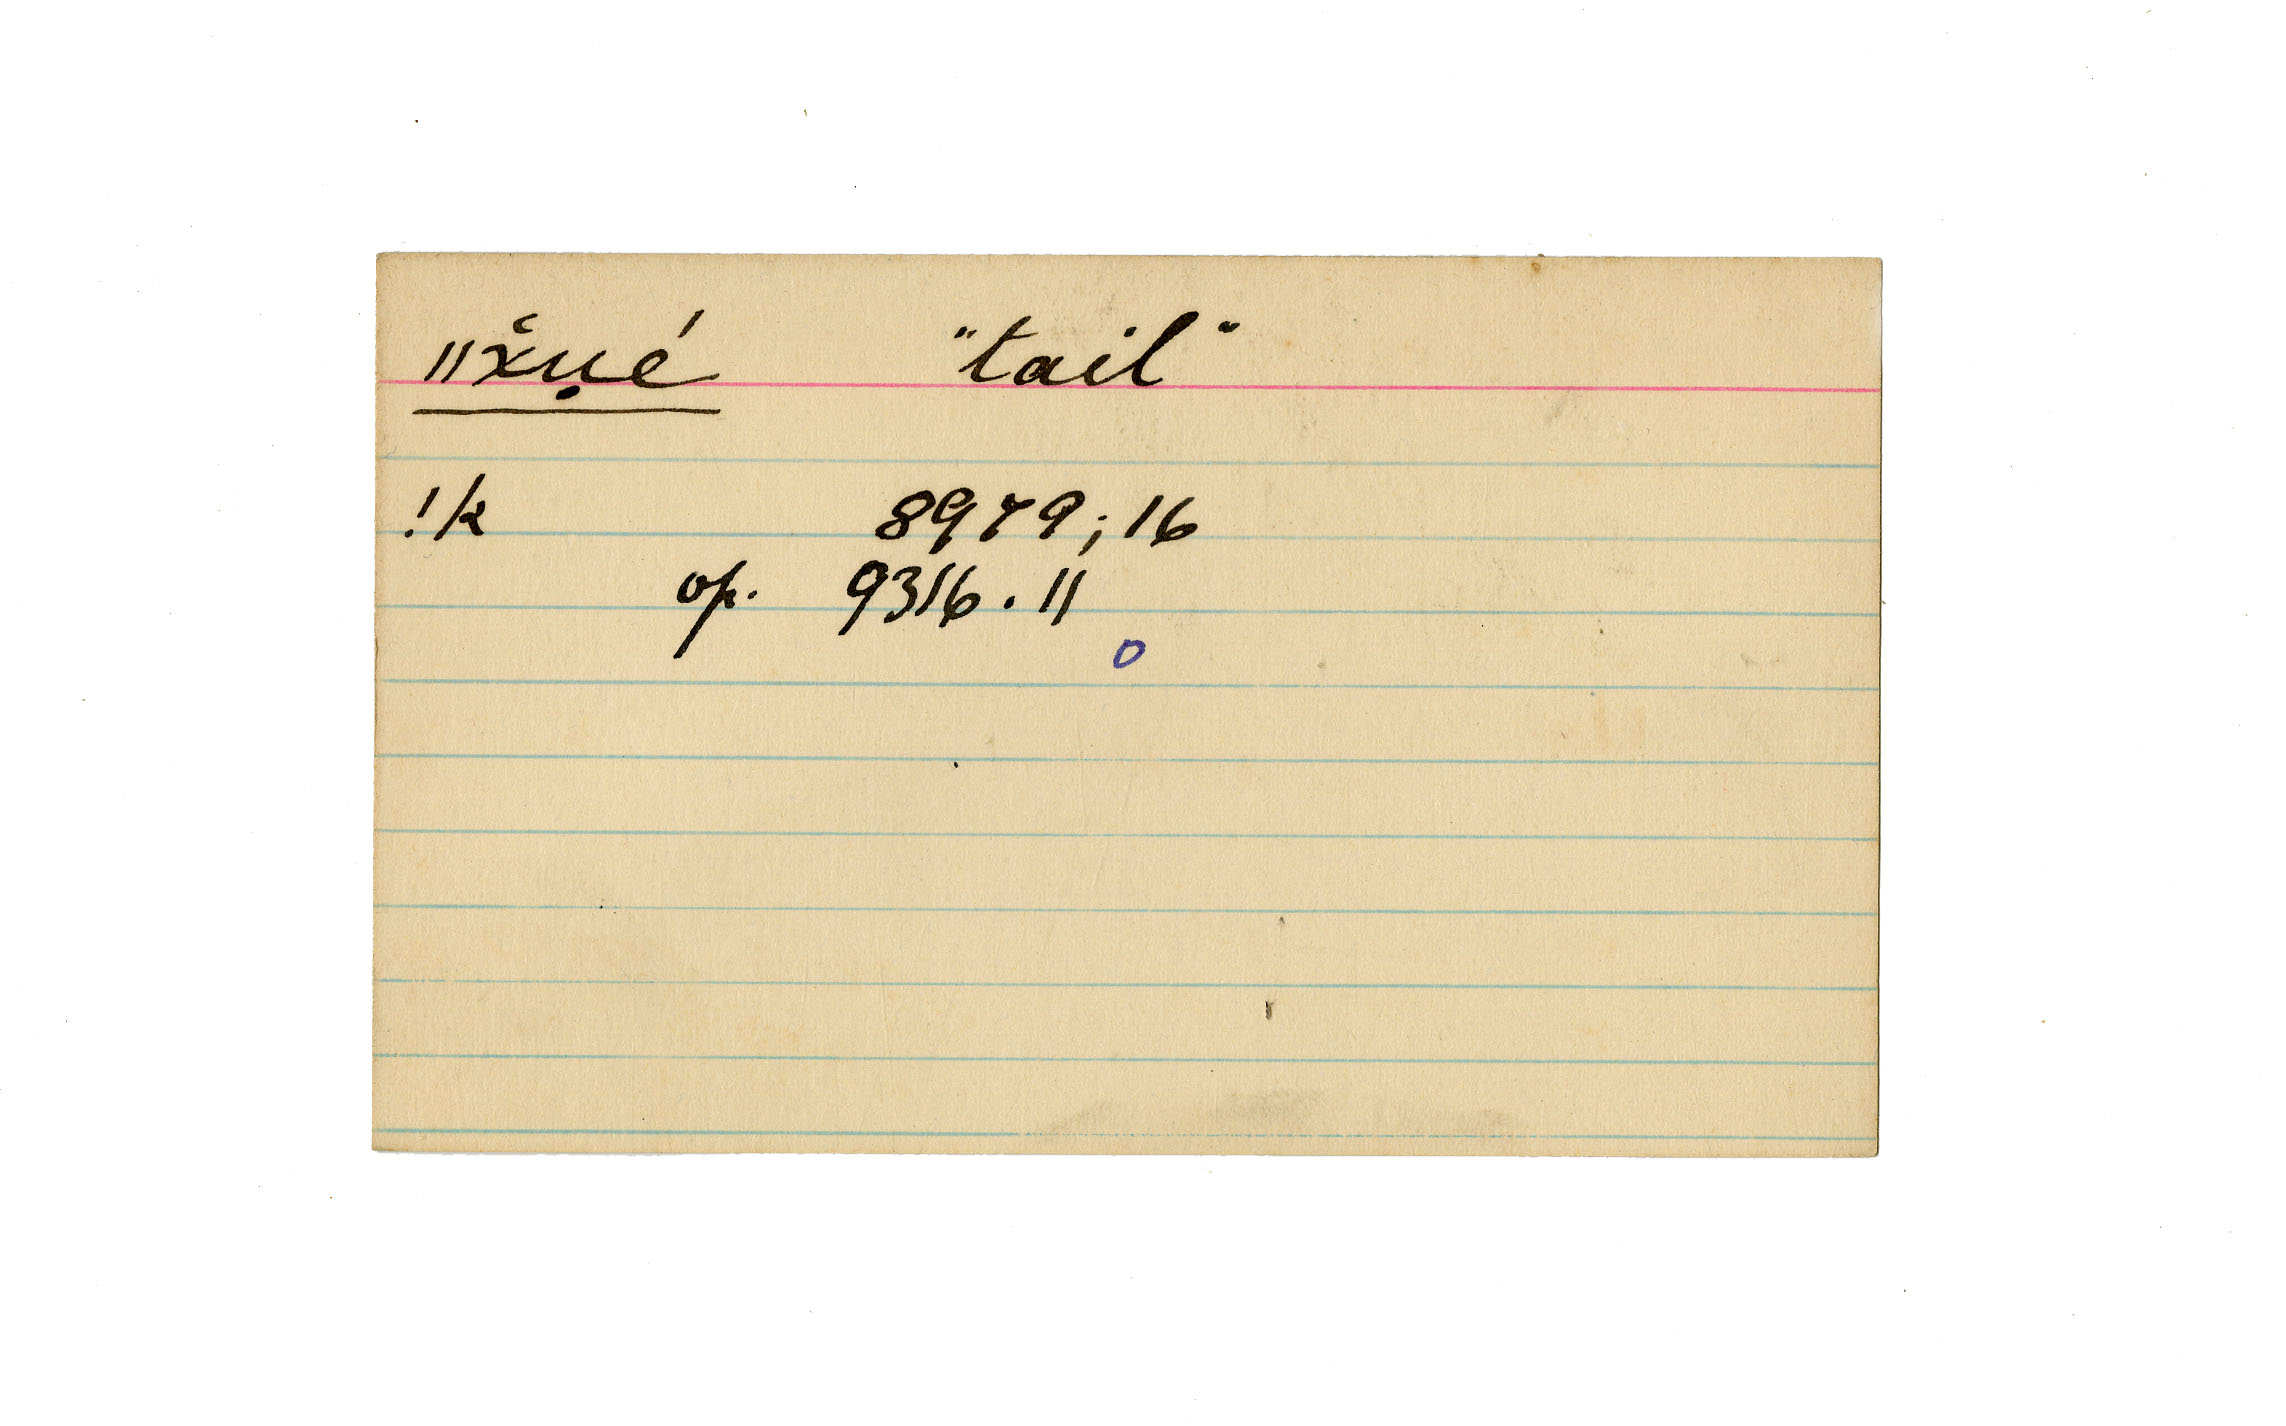 ǁx̌ụé "tail"
!k 8979; 16
op. 9316. 11
o